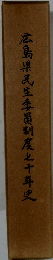 広島県民生委員制度七十年史